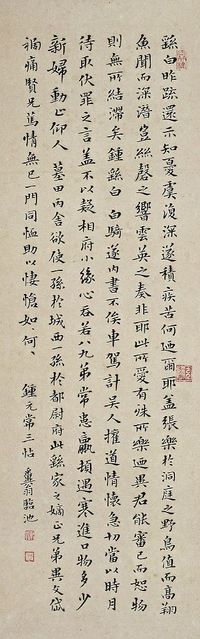 繇白昨疏還示知憂虞復深遂積疾苦何迺爾耶蓋張樂於洞庭之野鳥值而高翔
魚聞而深潛豈絲磬之響雲英之奏非耶此所愛有殊所樂迺異君能審己而恕物
則無所結滯矣鍾繇白 白騎遂內書不俟車駕計吳人權道情懷急切當以時月
待取伏罪之言蓋不以疑相府小緣心吞若八九弟常患羸頓遇寒進口物多少
新婦動止仰人 墓田丙舍欲使一孫於城西一孫於都尉府此繇家之嫡正兄弟異交
禍痛賢兄篤情無已一門同恤助以悽愴如何如何
鍾元常三帖 翁臨池